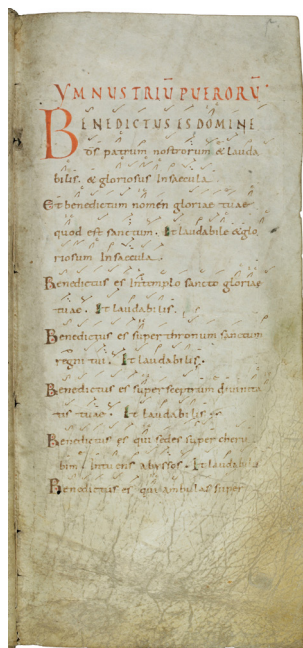 YMNUS TRIŪ PUERORŪ
BENEDICTUS ES DOMINE
dS patrum nostrorum & lauda
bilis. & gloriosus In saecula.
Et benedictum nomen gloriae tuae
quod est sanctum. Et laudabile & glo
riosum In saecula.
Benedictus es In templo sancto gloriae
tuae. Et laudabilis.
Benedictus es super thronum sanctum
regni tui. Et laudabilis.
Benedictus es super sceptrum divinita
tis tuae. Et laudabilis
Benedictus es qui sedes super cheru
bim. Intuens abyssos. Et laudabilis
Benedictus es qui ambulas super